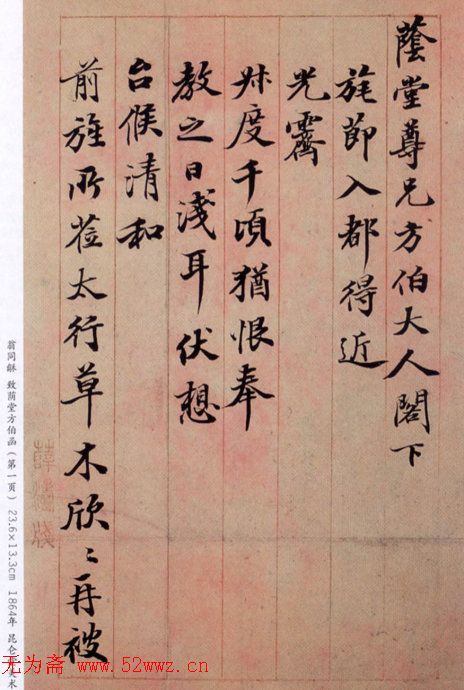 蔭堂尊兄方伯大人閣下
旄節入都得近
光霽
叔度千頃猶恨奉
教之日淺耳伏想
台候清和
前旌所莅太行草木欣〻再被
薛濤牋
翁同龢 致荫堂方伯函（第一页） 23.6×13.3cm 1864年 昆仑 美术
无为斋 www.52wwz.cn